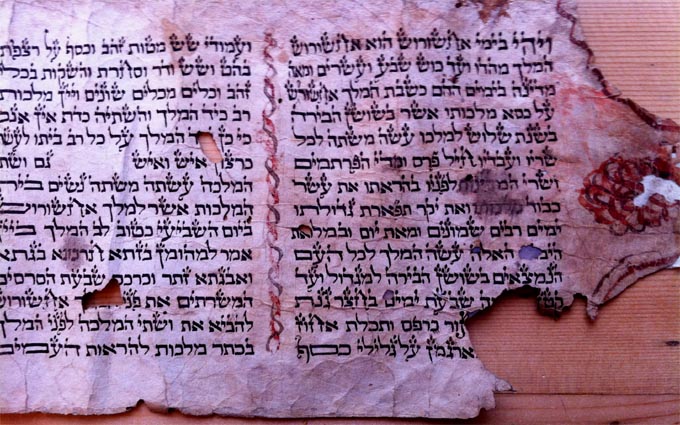 ויהי בימי אחשורוש הוא אחשורוש
המלך מהדו ועד כוש שבע ועשרים ומאה
מדינה בימים ההם כשבת המלך אחשורוש
על כסא מלכותו אשר בשושן הבירה
בשנת שלוש למלכו עשה משתה לכל
שריו ועבדיו חיל פרס ומדי הפרתמים
ושרי המדינות לפניו בהראתו את עשר
כבוד מלכותו ואת יקר תפארת גדולתו
ימים רבים שמונים ומאת יום ובמלואת
האלה עשה המלך לכל העם
הנמצאים בשושן הבירה למגדול ועד
שבעת ימים בחצר גנת
חור כרפס ותכלת אחוז
ארגמן על גלילי כסף
ועמודי שש מטות זהב וכסף על רצפת
בהט ושש ודר וסחרת והשקות בכלי
זהב וכלים מכלים שונים ויין מלכות
רב כיד המלך והשתיה כדת אין
כי כן המלך על כל רב ביתו
כרצון איש ואיש גם
המלכה עשתה משתה נשים בית
המלכות אשר למלך אחשורוש
ביום השביעי כטוב לב המלך ביין
אמר למהומן בזתא חרבונא בגתא
ואבגתא זתר וכרכס שבעת הסרסים
המשרתים את פני אחשורוש
להביא את ושתי המלכה לפני המלך
בכתר מלכות להראות העמים